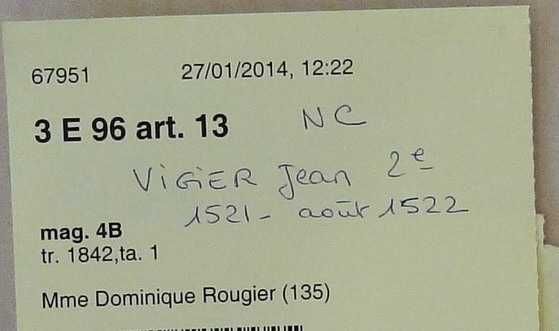 67951 27/01/2014, 12:22
3 E 96 art. 13 NC
VIGIER Jean 2e
1521 - août 1522
mag. 4B
tr. 1842,ta. 1
Mme Dominique Rougier (135)